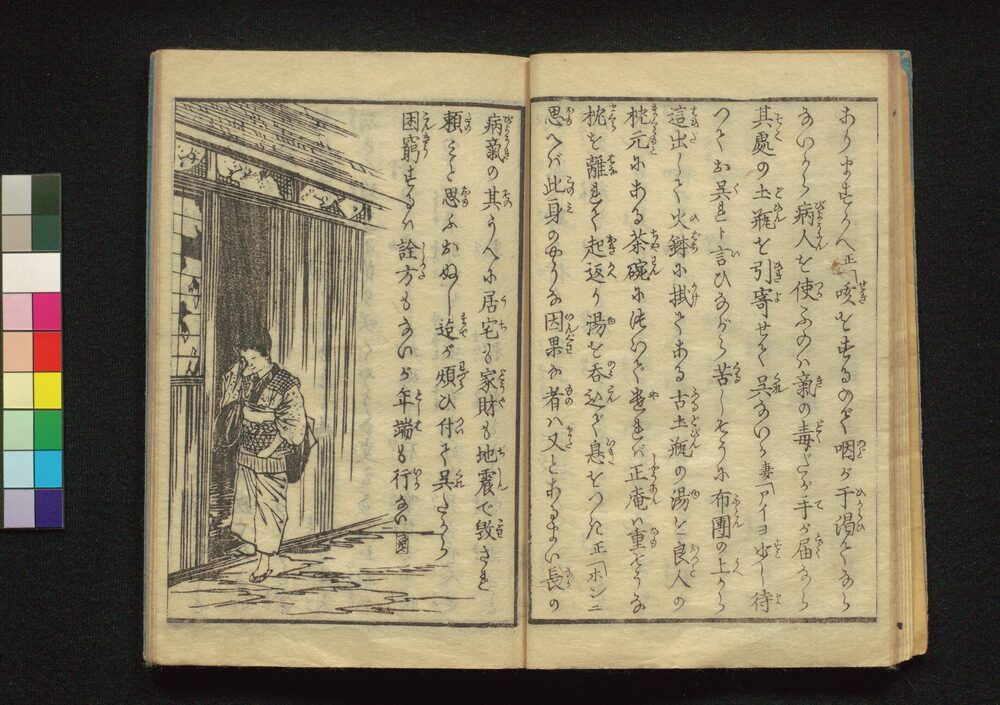 ありますらへ正「咳をするのぞ咽が干渇てならないから
病人を使ふのハ氣の毒だが手が届ならバ
其處の土瓶を引寄せて呉ないか妻「アイヨ少し待
つてお呉ト言ひながら苦しそうに布團の上から
這出して火鉢に掛てある古土瓶の湯を良人の
枕元にある茶碗に注いで遣れバ正庵ハ重そうな
枕を離れて起返り湯を呑込で息をつき正「ホンニ
思へバ此身のやうな因果な者ハ又とあるまい長の
病氣の其うへに居宅も家財も地震で毀され
頼みと思ふおぬし迄が煩ひ付て呉たから
困窮するハ詮方もないが年端も行ない